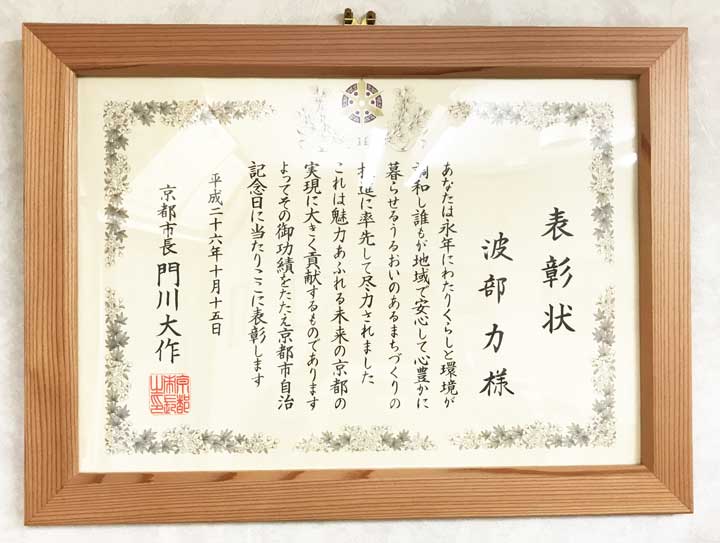 表彰状
波部力様
あなたは永年にわたりくらしと環境が
調和し誰もが地域で安心して心豊かに
暮らせるうるおいのあるまちづくりの
推進に率先して尽力されました
これは魅力あふれる未来の京都の
実現に大きく貢献するものであります
よってその御功績をたたえ京都市自治
記念日に当たりここに表彰します
平成二十六年十月十五日
京都市長 門川大作
京都市長之印